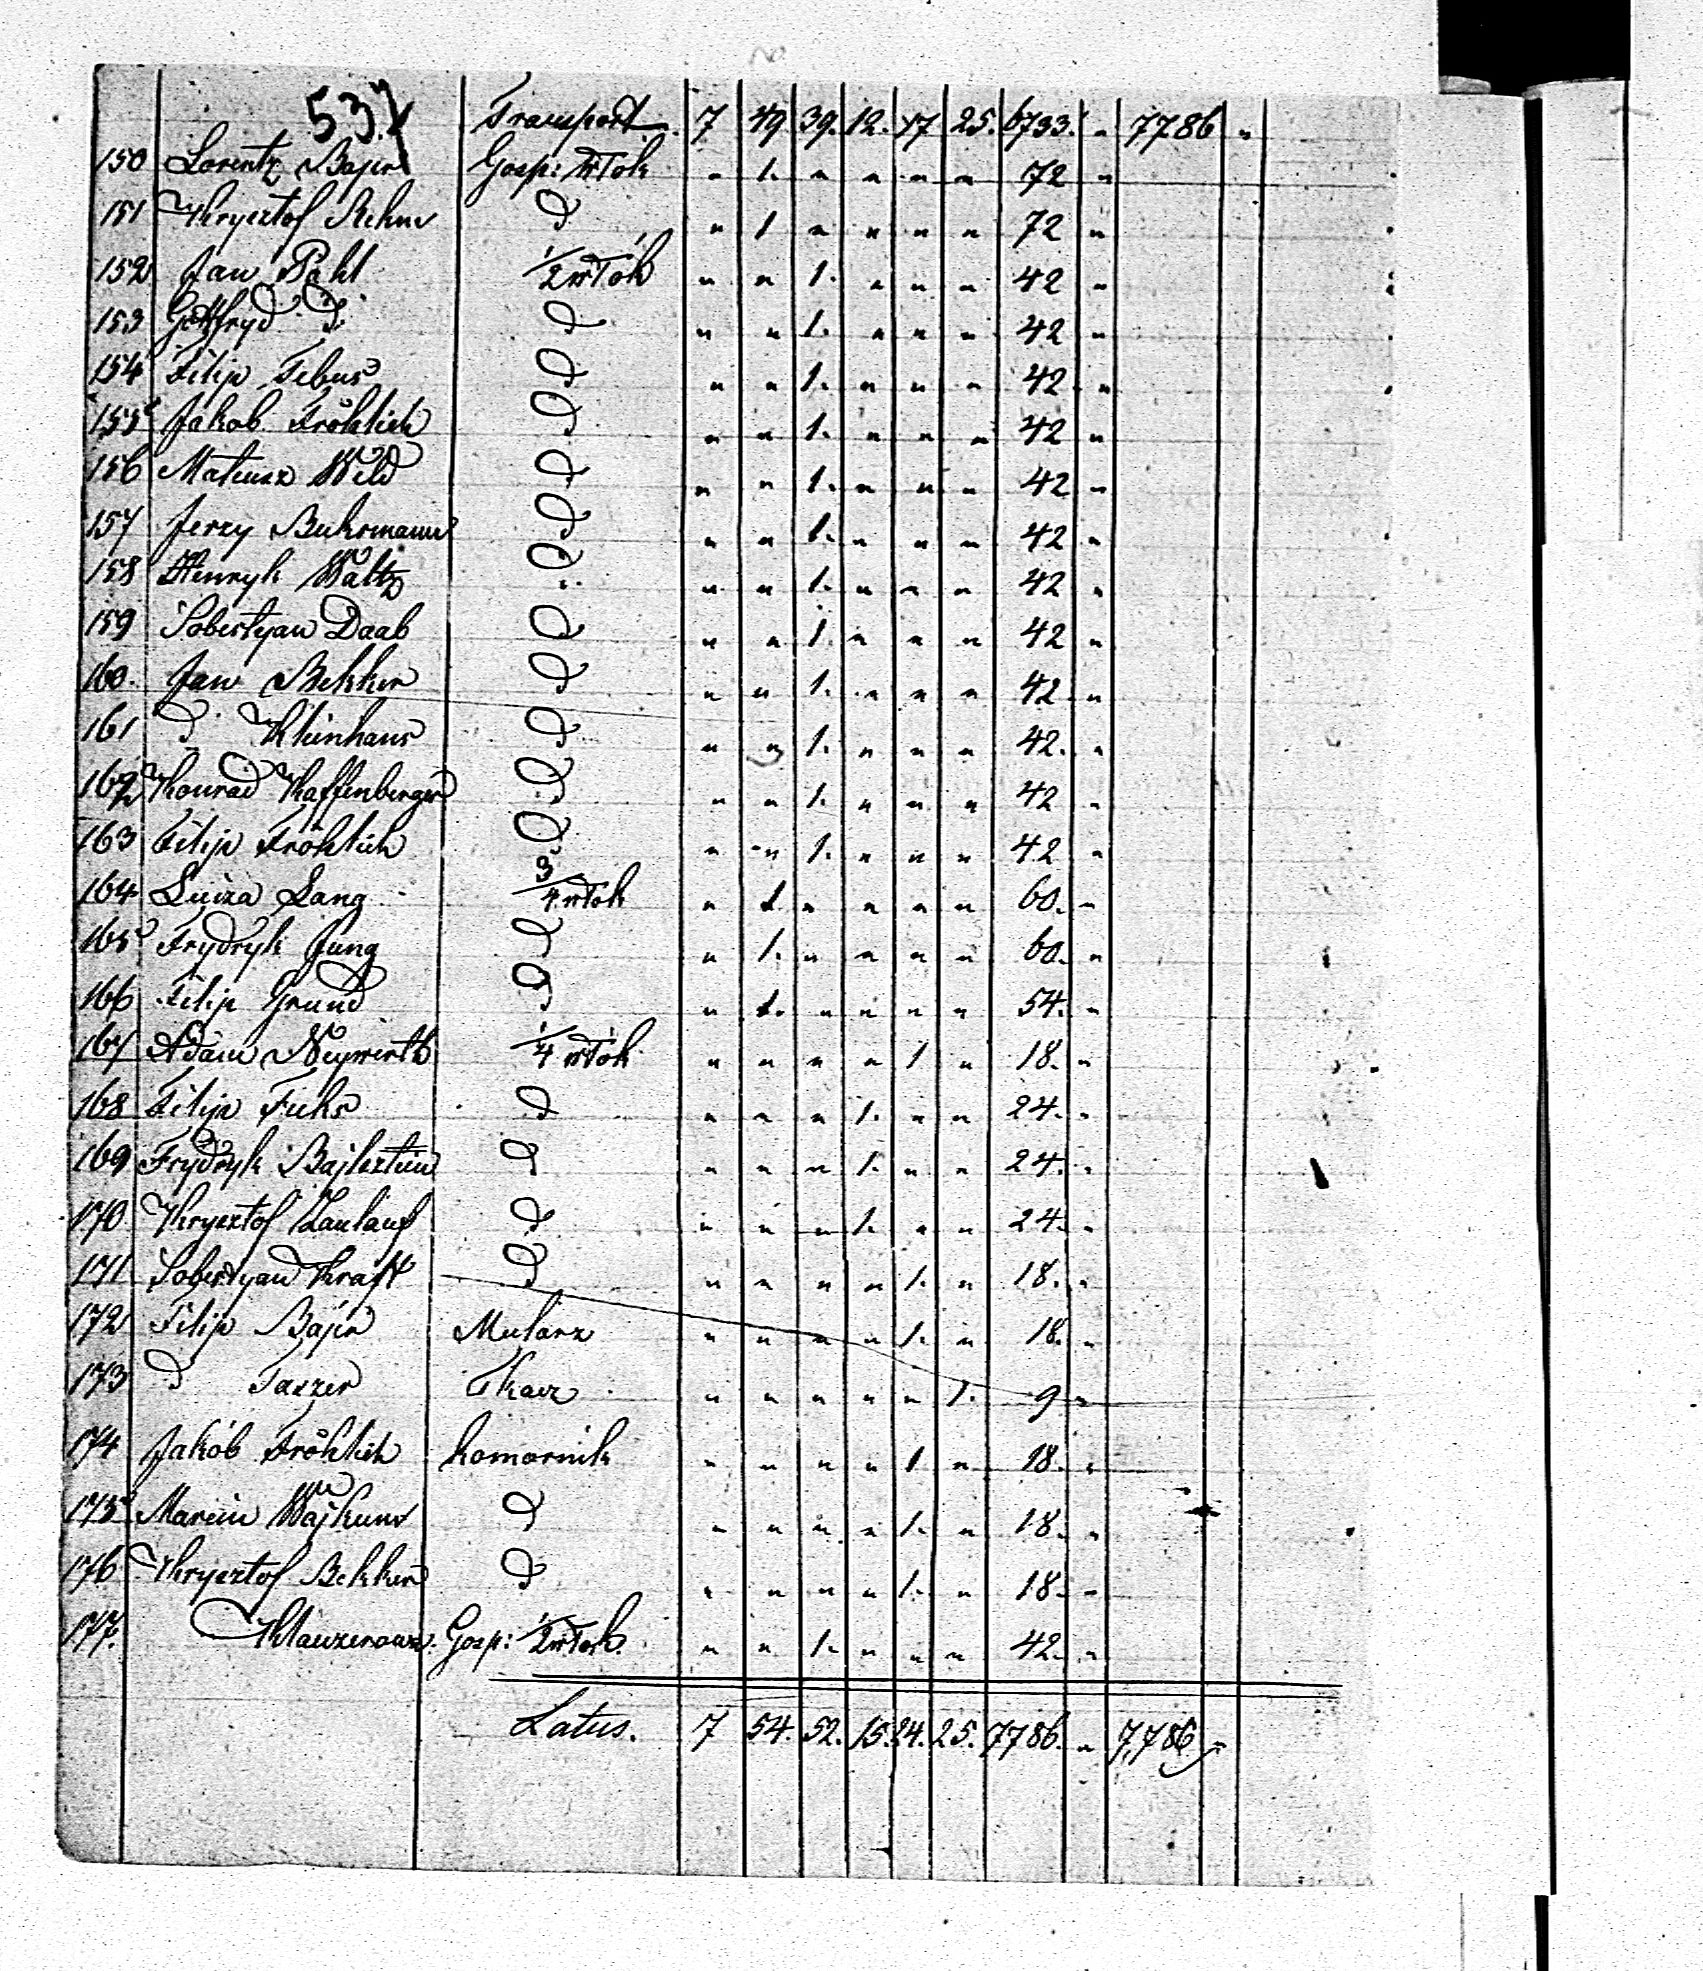 537 Transport. 7 49 39. 12. 17 25. 6733. " 7786 "
150 Lorentz Bajer Gosp: włok " 1. " " " " 72 "
151 Krysztof Rehm d " 1 " " " " 72 "
152 Jan Pahl 1/2 włók " " 1. " " " 42 "
153 Gottfryd d d " " 1. " " " 42 "
154 Filip Febus d " " 1. " " " 42 "
155 Jakob Fröhlich d " " 1. " " " 42 "
156 Mateusz Wild d " " 1. " " " 42 "
157 Jerzy Buhrmann d " " 1. " " " 42 "
158 Henryk Waltz d " " 1. " " " 42 "
159 Sobestyan Daab d " " 1. " " " 42 "
160. Jan Bekker d " " 1. " " " 42 "
161 d Kleinhans d " " 1. " " " 42. "
162 Konrad Kaffenberger d " " 1. " " " 42 "
163 Filip Fröhlich d " " 1. " " " 42 "
164 Luiza Lang 3/4 włok " 1. " " " " 60. "
165 Frydryk Jung d " 1. " " " " 60. "
166 Filip Grund d " 1. " " " " 54. "
167 Adam Neywirth 1/4 włók " " " " 1 " 18. "
168 Filip Fuks d " " " 1. " " 24. "
169 Frydryk Bajlsztein d " " " 1. " " 24. "
170 Krysztof Zaulauf d " " " 1. " " 24. "
171 Sobestyan Kraft d " " " " 1. " 18. "
172 Filip Bajer Mularz " " " " 1. " 18. "
173 d Faszer Tkacz " " " " " 1. 9 "
174 Jakób Fröhlich komornik " " " " 1 " 18. "
175 Marcin Wajkum d " " " " 1. " 18. "
176 Krysztof Bekker d " " " " 1. " 18. "
177. Gosp: 1/2 włok. " " 1. " " " 42. "
Latus. 7 54. 52. 15. 24. 25. 7786. " 7,786 "